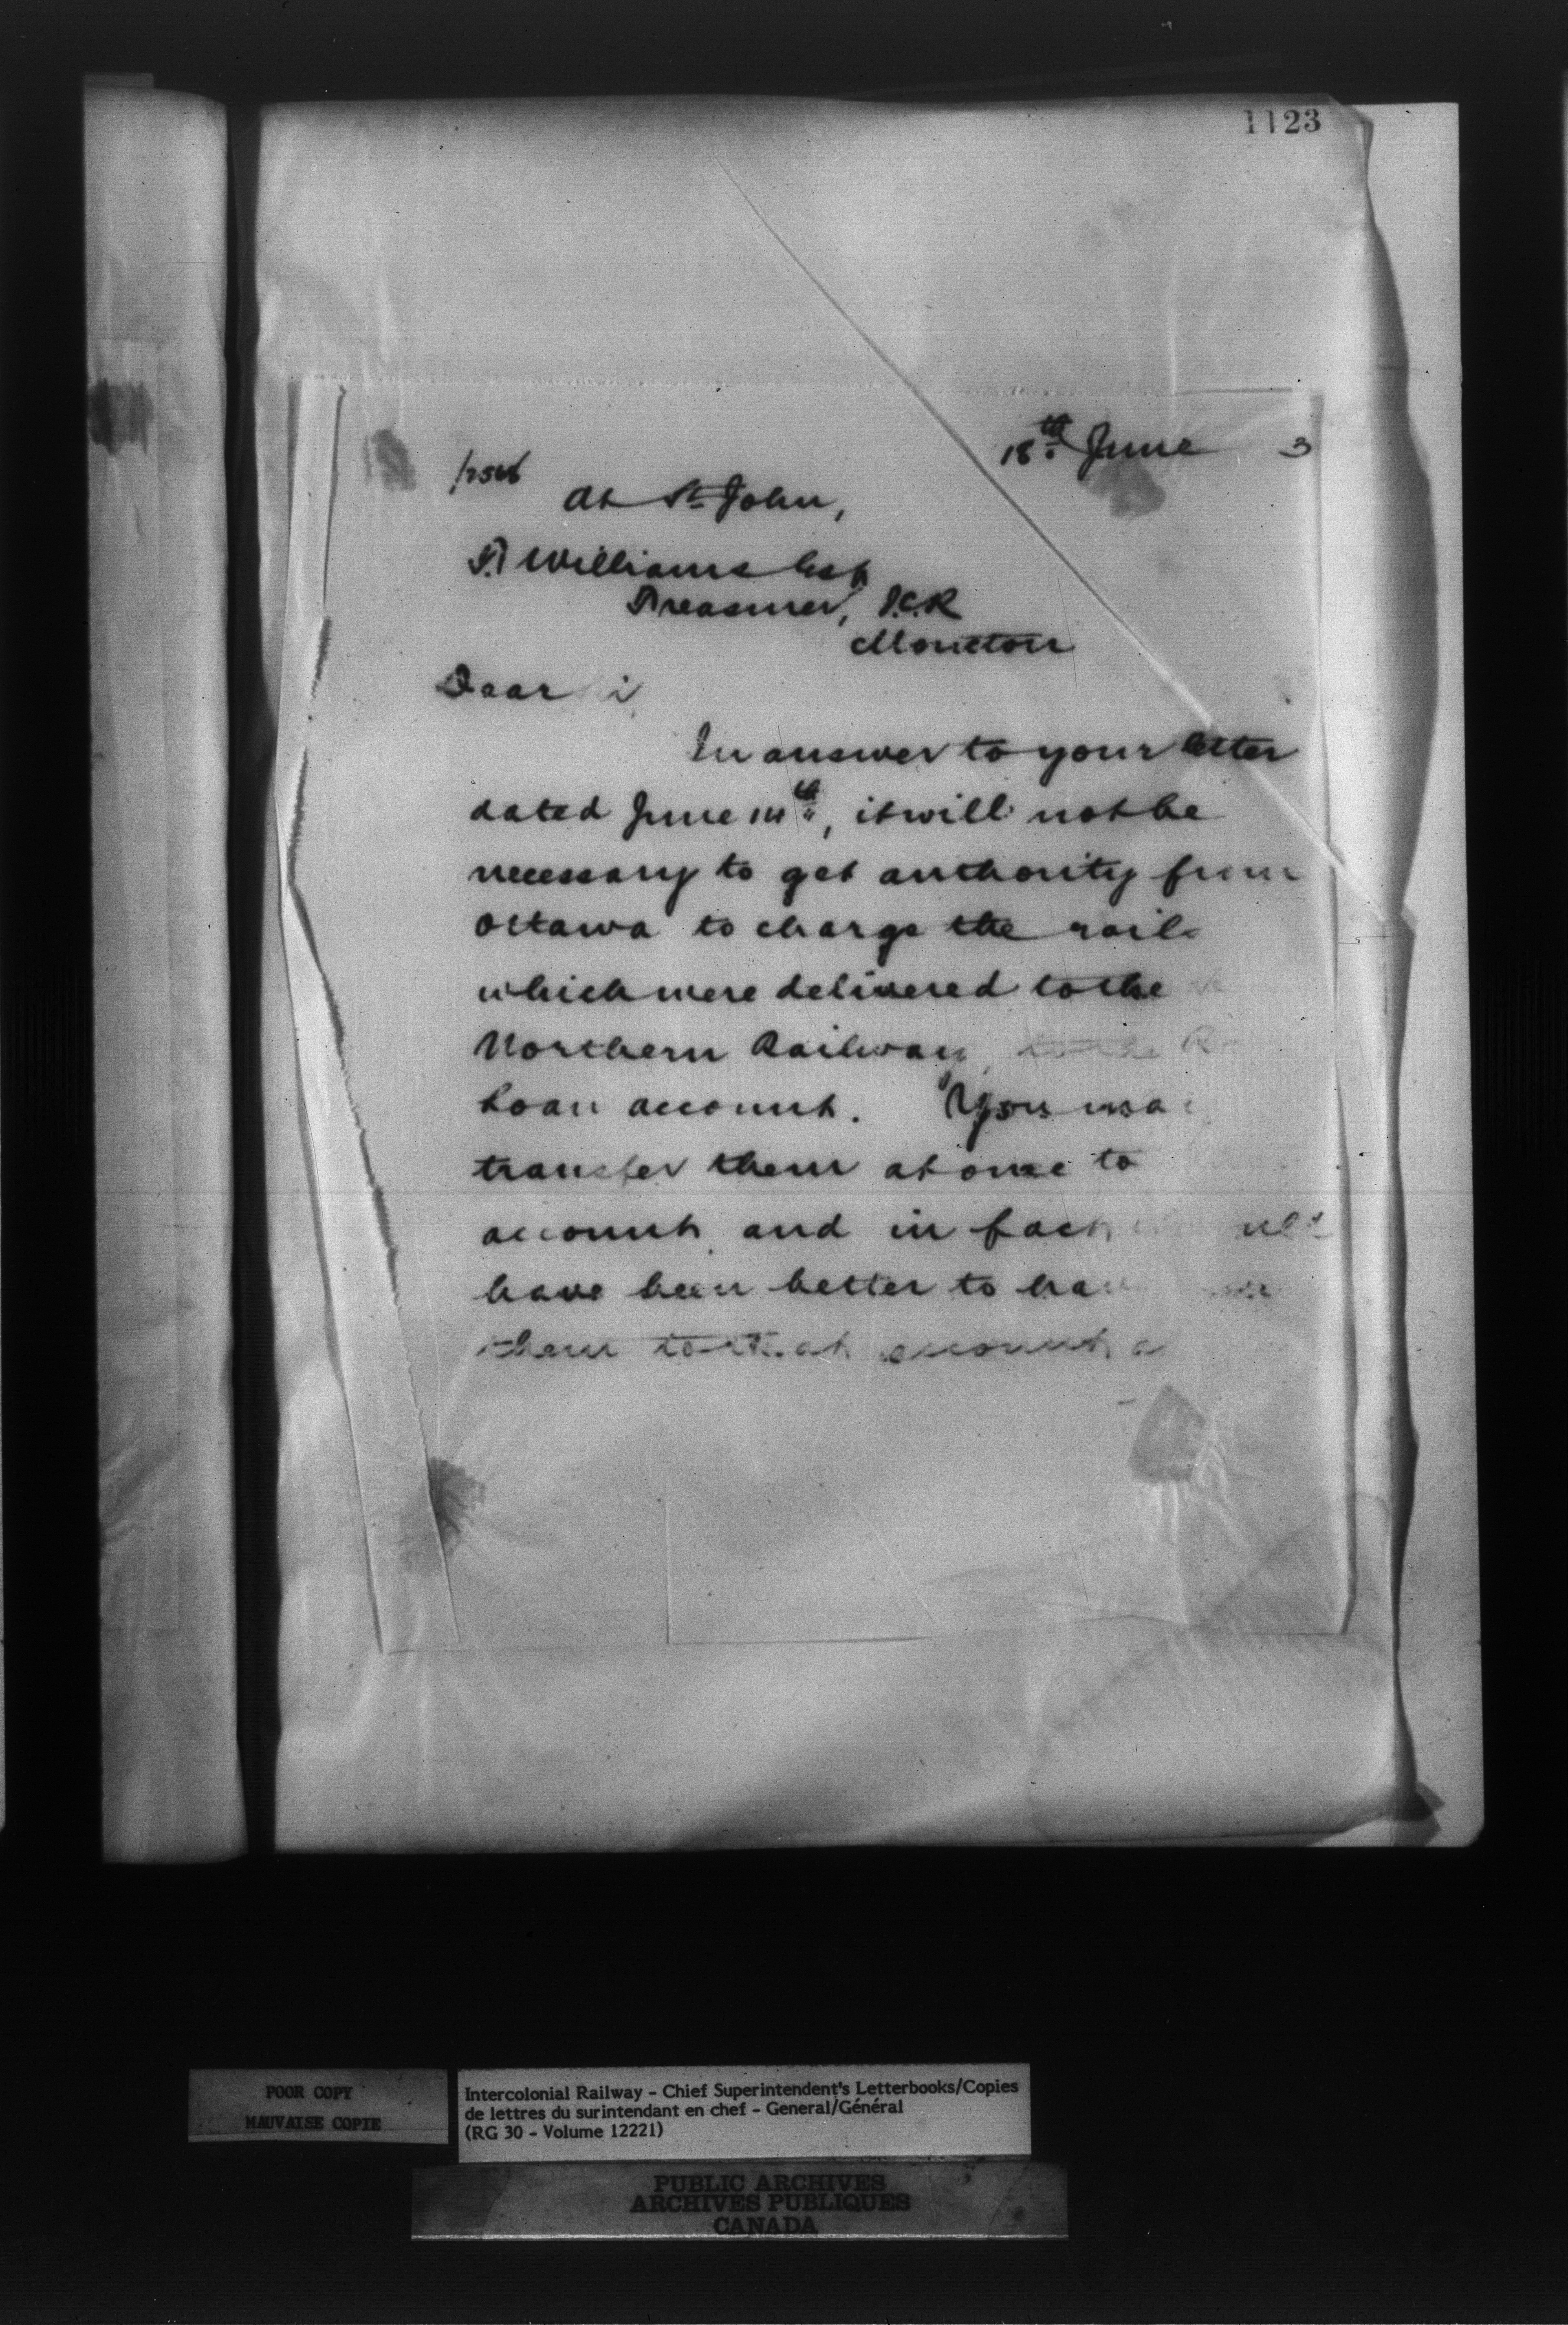 1123
18th June 3
At St John,
T. Williams Esq
Treasurer, I.C.R
Moncton
Dear
In answer to your letter
dated June 14th, it will not be
necessary to get authority from
Ottawa to charge the rails
which were delivered to the
Northern Railway, to the
Loan account. You may
transfer them at once to
account, and in fact
have been better to have
them to that account
POOR COPY
MAUVAISE COPIE
Intercolonial Railway - Chief Superintendent's Letterbooks/Copies
de lettres du surintendant en chef - General/Général
(RG 30 - Volume 12221)
PUBLIC ARCHIVES
ARCHIVES PUBLIQUES
CANADA